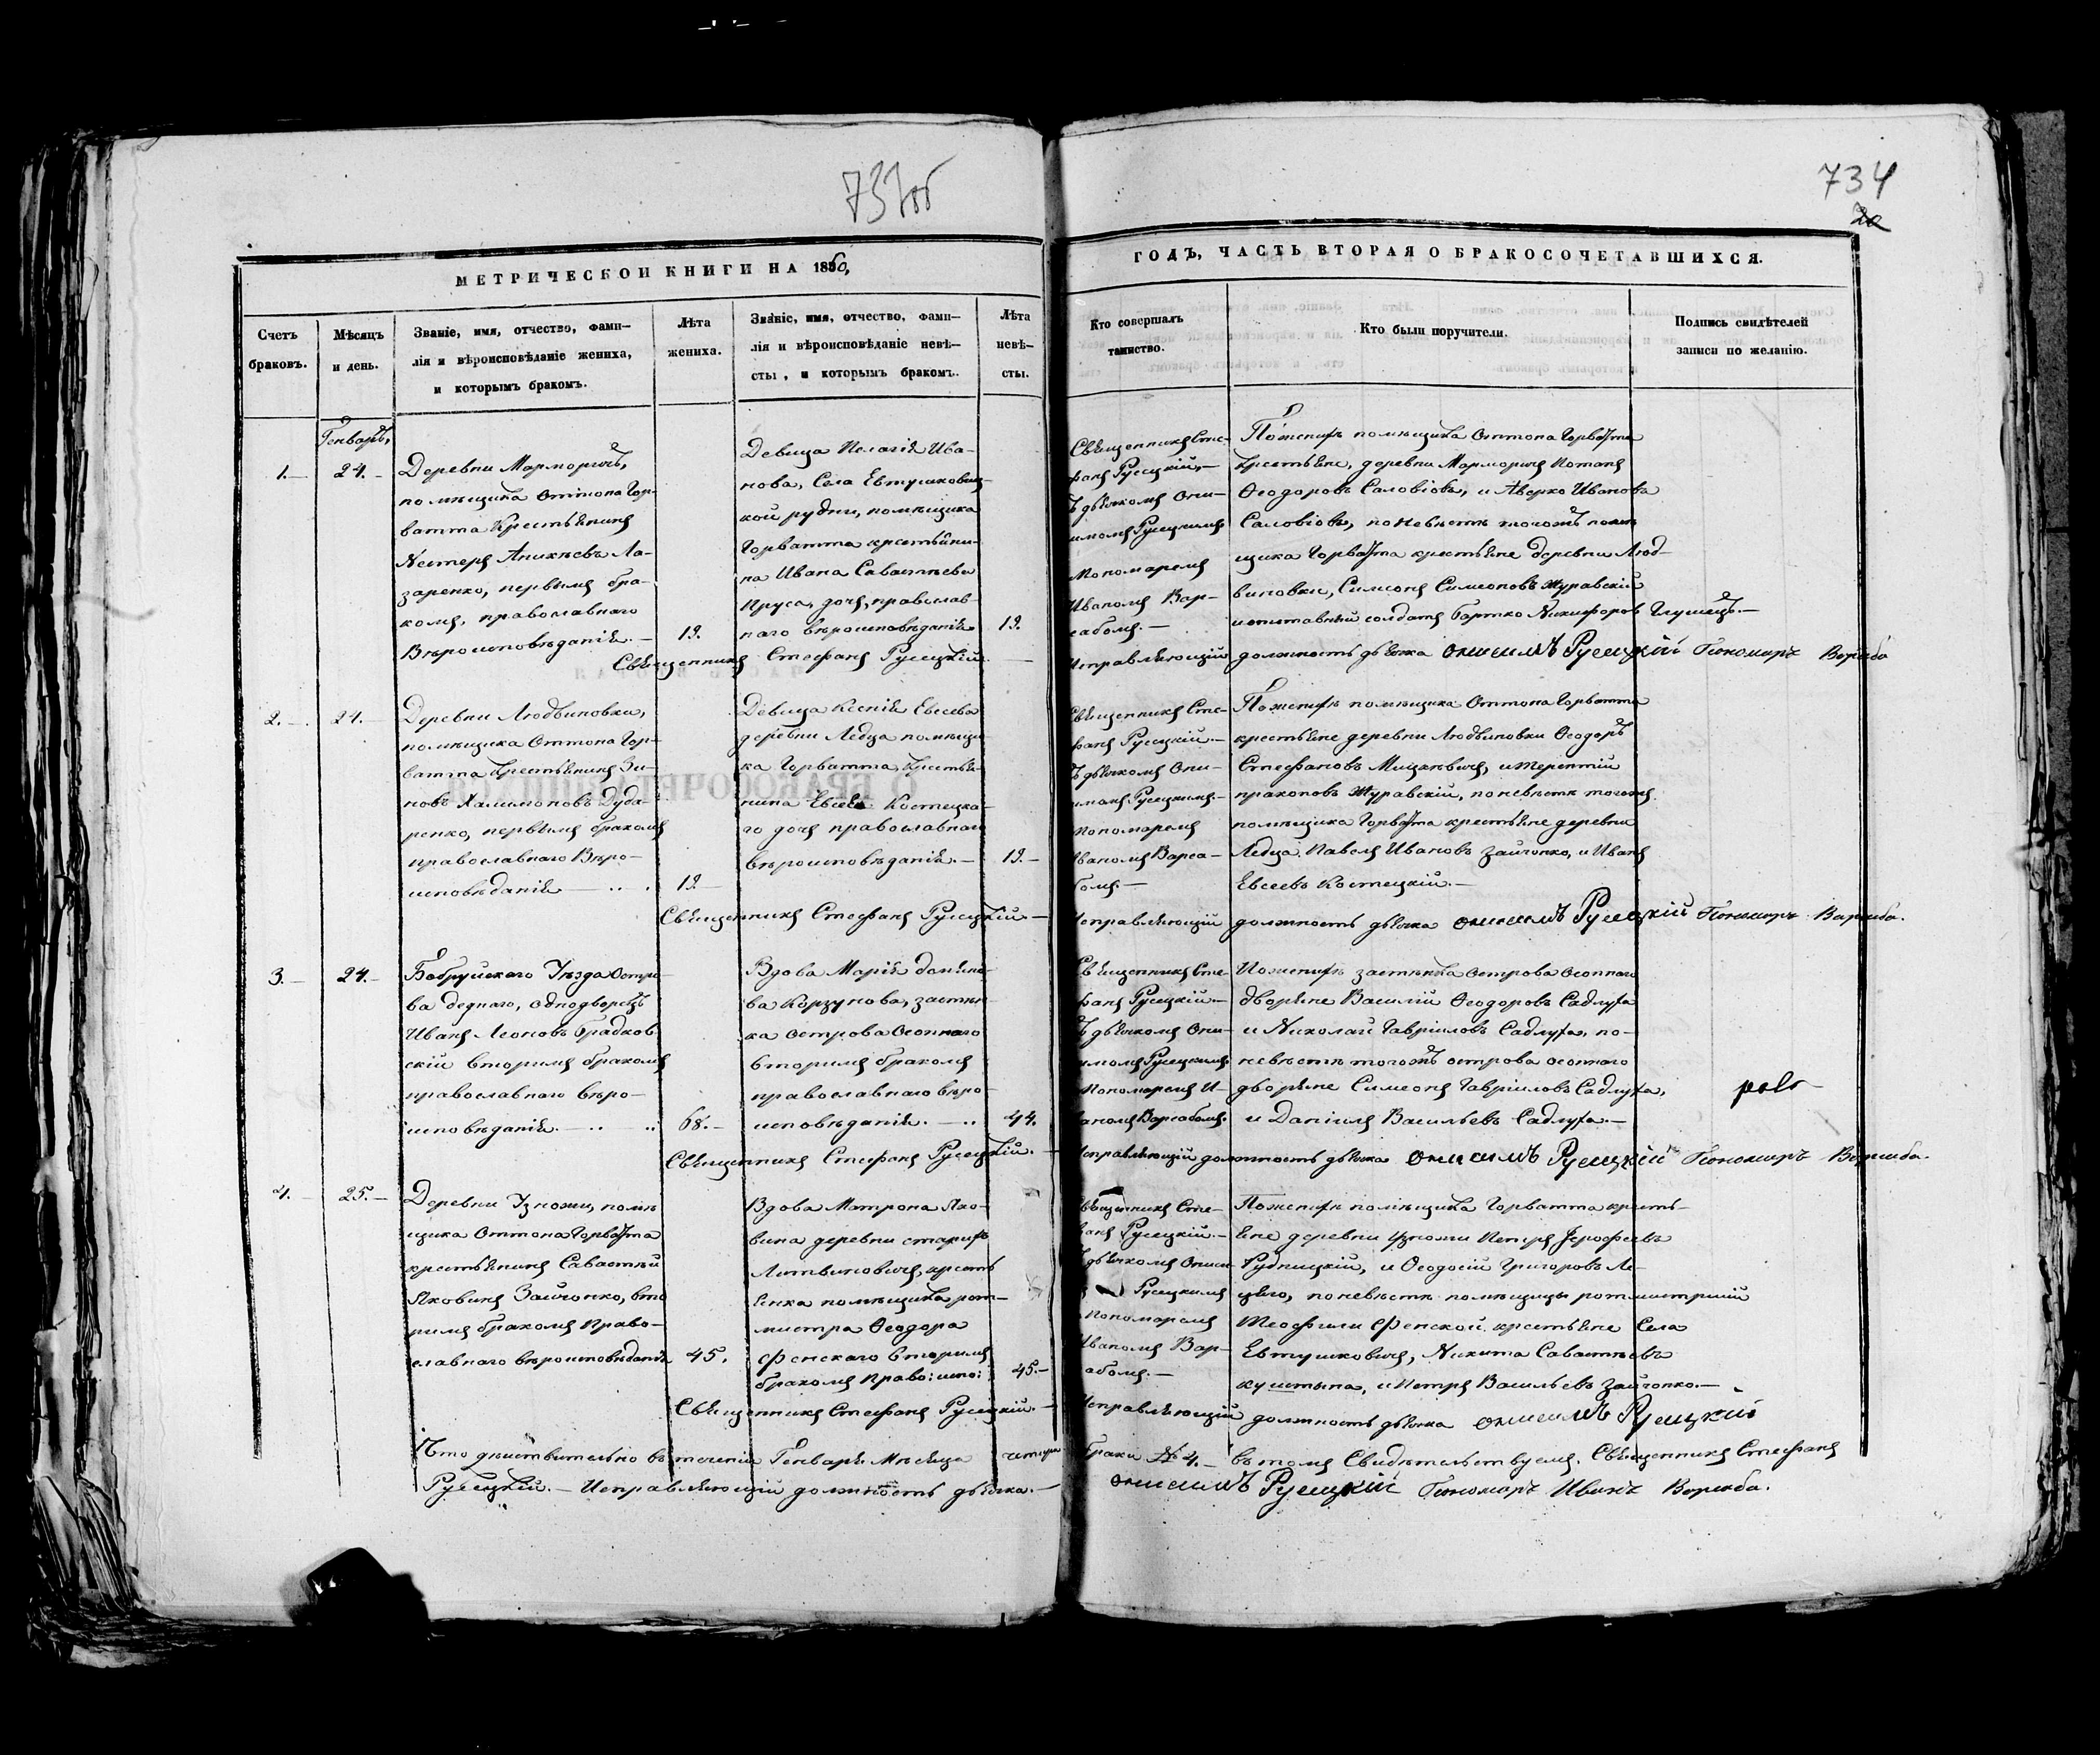 734
МЕТРИЧЕСКОЙ КНИГИ НА 1850,
ГОДЪ, ЧАСТЬ ВТОРАЯ О БРАКОСОЧЕТАВШИХСЯ.
Счетъ
браковъ.
Мѣсяцъ
и день.
Званіе, имя, отчество, фами-
лія и вѣроисповѣданіе жениха,
и которымъ бракомъ.
Лѣта
жениха.
Званіе, имя, отчество, фами-
лія и вѣроисповѣданіе невѣ-
сты, и которымъ бракомъ.
Лѣта
невѣ-
сты.
Кто совершалъ
таинство.
Кто были поручители.
Подпись свидѣтелей
записи по желанію.
Генварь,
1.— 24.—
помѣщика Оттона Гор-
ватта Крестьянинъ
Нестеръ Ла-
заренко, первымъ бра-
комъ, православнаго
Вѣроисповѣданія.— 19.
Девица Пелагія Ива-
нова, Села Евтушковиц-
кой рудни, помѣщика
Горватта крестьяни-
на Ивана Савастѣева
Пруса, дочь, православ-
наго вѣроисповѣданія 19.
Священникъ Стефанъ Русецкій.—
Священникъ Сте-
фанъ Русецкій,—
Русецкимъ
Пономаремъ
Иваномъ Вар-
сабомъ.—
По женихѣ помѣщика Оттона Горватта
крестьяне, деревни
Феодоровъ Саловіовъ, и Аверко Ивановъ
Саловіовъ, по невѣстѣ тогожъ помѣ-
щика Горватта крестьяне деревни Люд-
виновки, Симеонъ Симеоновъ Журавскій
и отставный солдатъ Никифоровъ Глушецъ.—
Исправляющій должность дьячка Онисимъ Русецкій Пономарь
2.— 24.—
Деревни Людвиновки,
помѣщика Оттона Гор-
ватта Крестьянинъ Зи-
новъ Халимоновъ Дуда-
ренко, первымъ бракомъ
православнаго Вѣро-
исповѣданія — .. . 19.—
Девица Ксенія Евсеева
деревни Ледца помѣщи-
ка Горватта, Крестья-
нина Евсея Костецка-
го дочь православнаго
вѣроисповѣданія.— 19.—
Священникъ Стефанъ Русецкій.—
Священникъ Сте-
фанъ Русецкій.—
Русецкимъ.—
Пономаремъ
Иваномъ Варса-
бомъ.—
По женихѣ помѣщика Оттона Горватта
крестьяне деревни Людвиновки Феодоръ
Стефановъ Мицкѣвичъ, и Терентій
Праконовъ Журавскій, по невѣстѣ тогожъ
помѣщика Горватта крестьяне деревни
Ледца, Павелъ Ивановъ Зайчонко, и Иванъ
Евсеевъ Костецкій.—
Исправляющій должность дьячка Онисимъ Русецкій Пономарь
3.— 24.—
Бобруйскаго Уѣзда Остро-
ва беднаго, однодворецъ
Иванъ Леоновъ
скій вторимъ бракомъ
православнаго вѣро-
исповѣданія.— .. .. 68.—
Вдова Марія
ва Корзунова, застѣн-
ка острова
вторимъ бракомъ
православнаго вѣро-
исповѣданія.— .. 44.
Священникъ Стефанъ Русецкій.—
Священникъ Сте-
фанъ Русецкій.—
Русецкимъ
Пономаремъ И-
По женихѣ застѣнка острова
дворяне Василій Феодоровъ Садлуха
и Николай Гавріиловъ Садлуха, по-
невѣстѣ тогожъ острова
дворяне Симеонъ Гавріиловъ Садлуха,
и Даніилъ Васильевъ Садлуха.—
Исправляющій должность дьячка Онисимъ Русецкій Пономарь
4.— 25.—
Деревни Узножи, помѣ-
щика Оттона Горватта
крестьянинъ Савастѣй
Яковинъ Зайчонко, вто-
римъ бракомъ Право-
славнаго вѣроисповѣданія 45.
Вдова Матрона Яко-
вина деревни старихъ
Литвиновичъ, кресть-
янка помѣщика рот-
мистра Феодора
Фенскаго вторимъ
бракомъ право: испо: 45.—
Священникъ Стефанъ Русецкій.—
Священникъ Сте-
фанъ Русецкій.—
Русецкимъ
Пономаремъ
Иваномъ Вар-
сабомъ.—
По женихѣ помѣщика Горватта кресть-
яне деревни Узножи Петръ Ерофѣевъ
Рудницкій, и Феодосій Григоровъ Ле-
по невѣстѣ помѣщицы ротмистриши
Теофили Фенской крестьяне Села
Евтушковичъ, Никита Савастѣевъ
и Петръ Васильевъ Зайчонко.—
Исправляющій должность дьячка Онисимъ Русецкій
Что дѣйствительно въ теченіи Генваря Мѣсяца четыри
браки № 4.— въ томъ Свидѣтельствуемъ. Священникъ Стефанъ
Русецкій.— Исправляющій должность дьячка.—
Онисимъ Русецкій Пономарь Иванъ